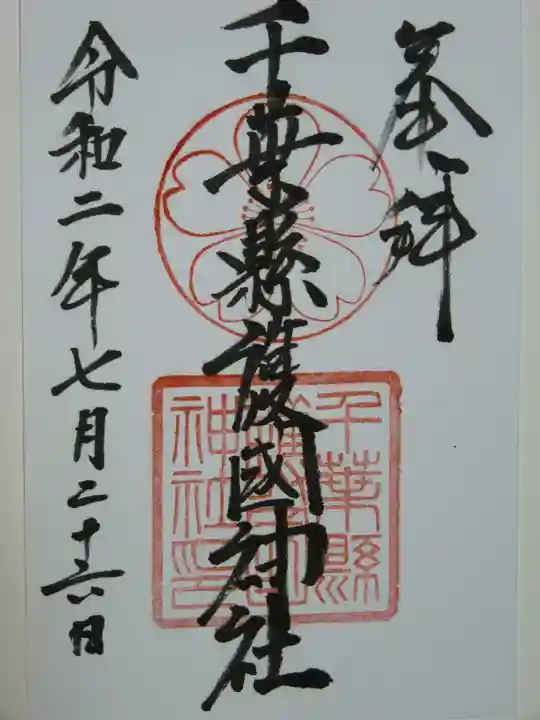 奉拝
千葉縣護國神社
千葉縣
護國
神社印
令和二年七月二十六日